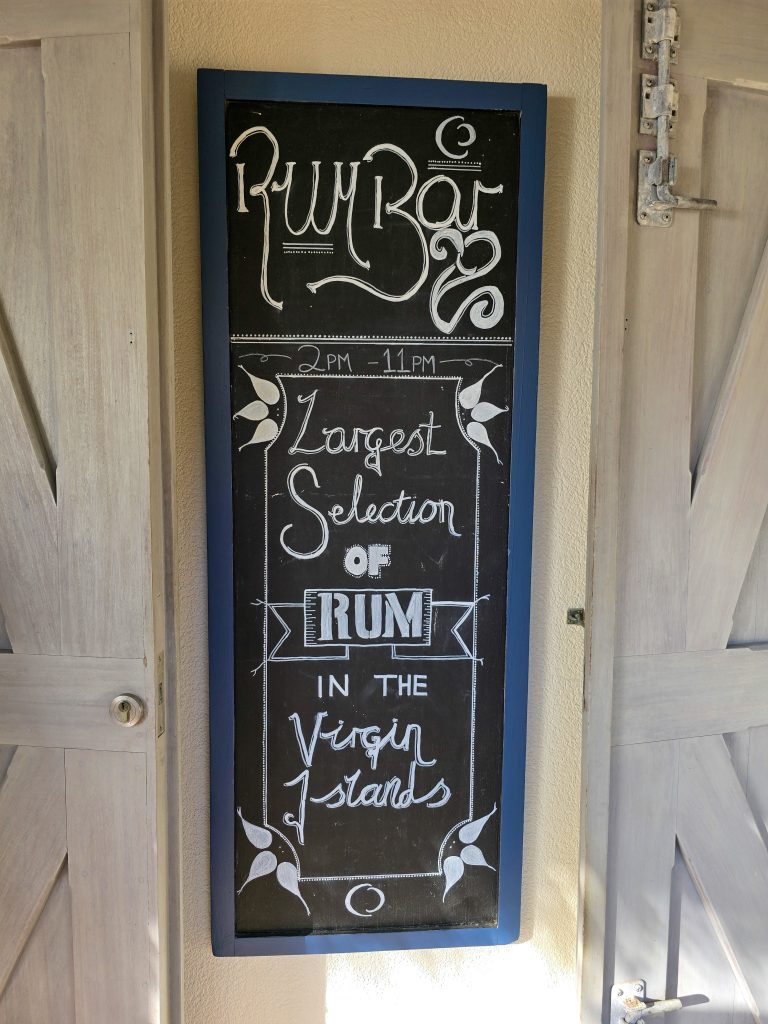 Rum Bar
2PM - 11PM
Largest
Selection
OF
RUM
IN THE
Virgin
Islands